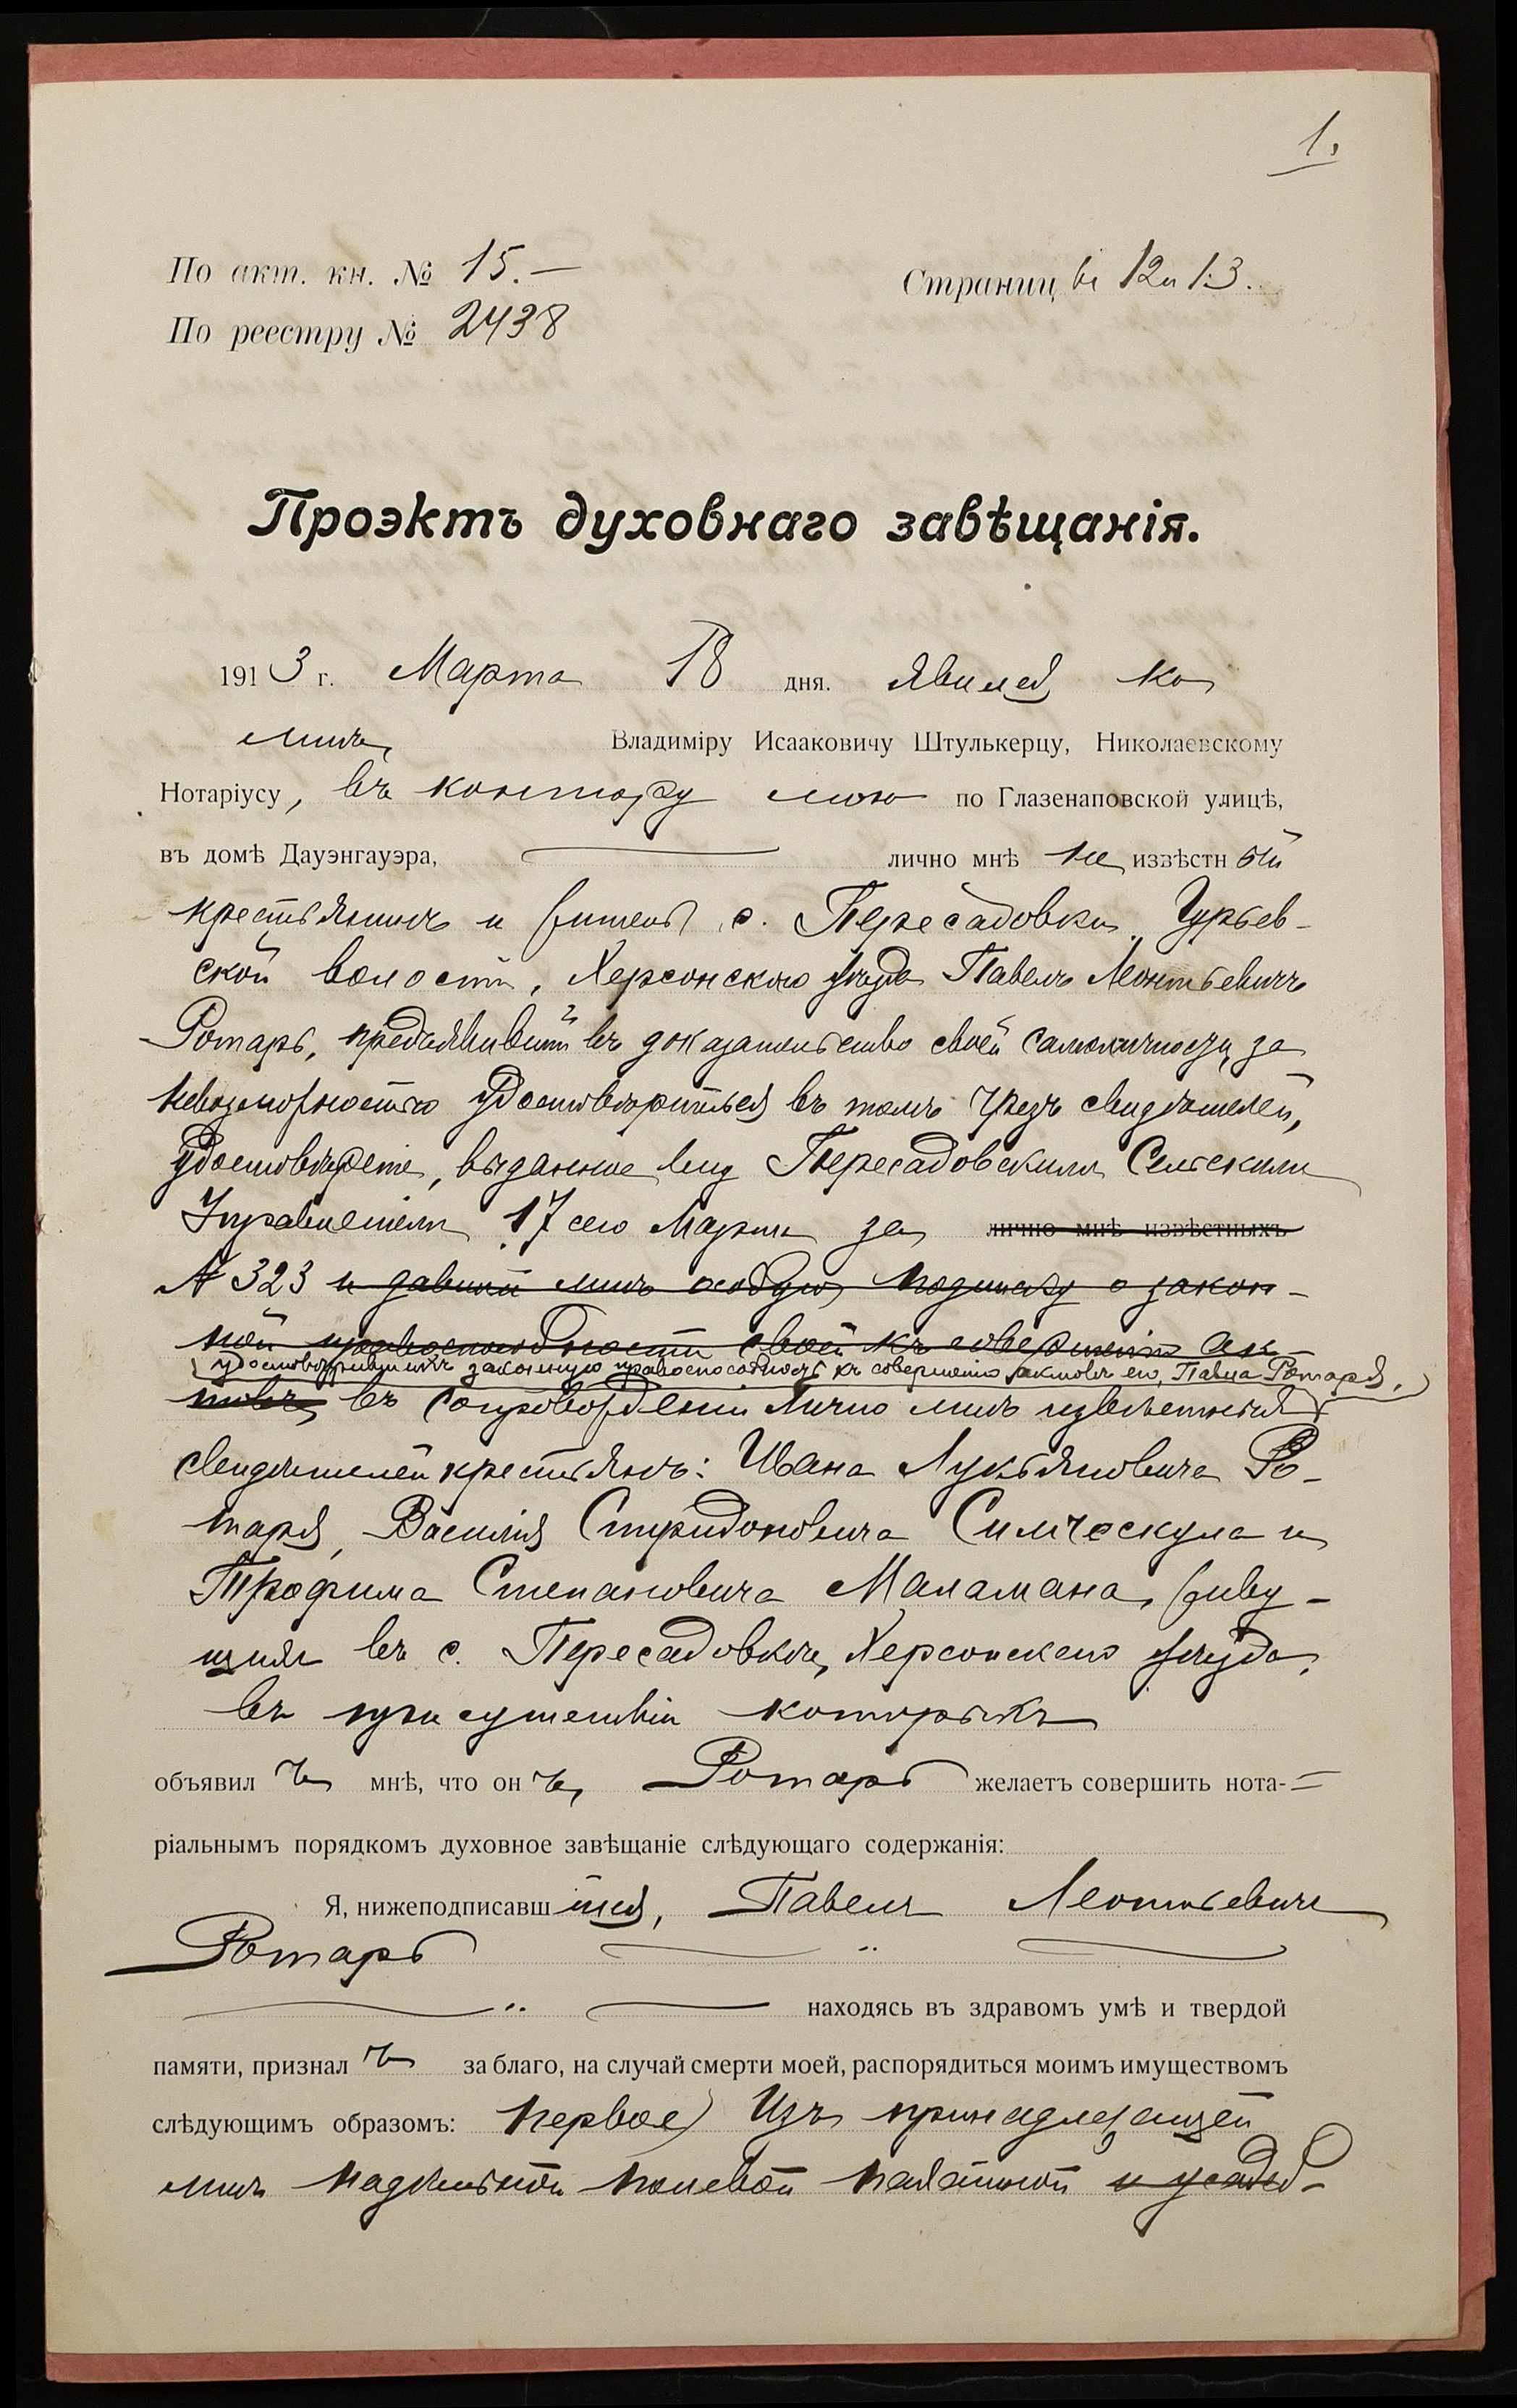 1.
По акт. кн. № 15.—
Страниц ы 12 и 13.
По реестру № 2438
Проэктъ духовнаго завѣщанія.
1913 г. Марта 18 дня. явился ко
мнѣ, Владиміру Исааковичу Штулькерцу, Николаевскому
Нотаріусу, въ контору мою по Глазенаповской улицѣ,
въ домѣ Дауэнгауэра, лично мнѣ не извѣстный
крестьянинъ и житель с. Пересадовки Гурьев-
ской волости, Херсонскаго уѣзда Павелъ Леонтьевичъ
Ротарь, предъявившій въ доказательство своей самоличности, за
невозможностью удостовѣриться въ томъ чрезъ свидѣтелей,
удостовѣреніе, выданное ему Пересадовскимъ Сельскимъ
Управленіемъ 17 сего Марта за лично мнѣ извѣстныхъ
№ 323 и давшій мнѣ особую подписку о закон-
ной правоспособности своей къ совершенію ак-
удостовѣрившихъ законную правоспособность къ совершенію актовъ его, Павла Ротаря,
товъ, въ сопровожденіи лично мнѣ извѣстныхъ
свидѣтелей крестьянъ: Ивана Лукьяновича Ро-
таря, Василія Спиридоновича Симческула и
Трофима Степановича Маламана, живу-
щихъ въ с. Пересадовкѣ, Херсонскаго уѣзда,
въ присутствіи которыхъ
объявилъ мнѣ, что онъ, Ротарь желаетъ совершить нота-
ріальнымъ порядкомъ духовное завѣщаніе слѣдующаго содержанія:
Я, нижеподписавшійся, Павелъ Леонтьевичъ
Ротарь
находясь въ здравомъ умѣ и твердой
памяти, призналъ за благо, на случай смерти моей, распорядиться моимъ имуществомъ
слѣдующимъ образомъ: Первое) Изъ принадлежащей
мнѣ надѣльной полевой пахатной и усадеб-